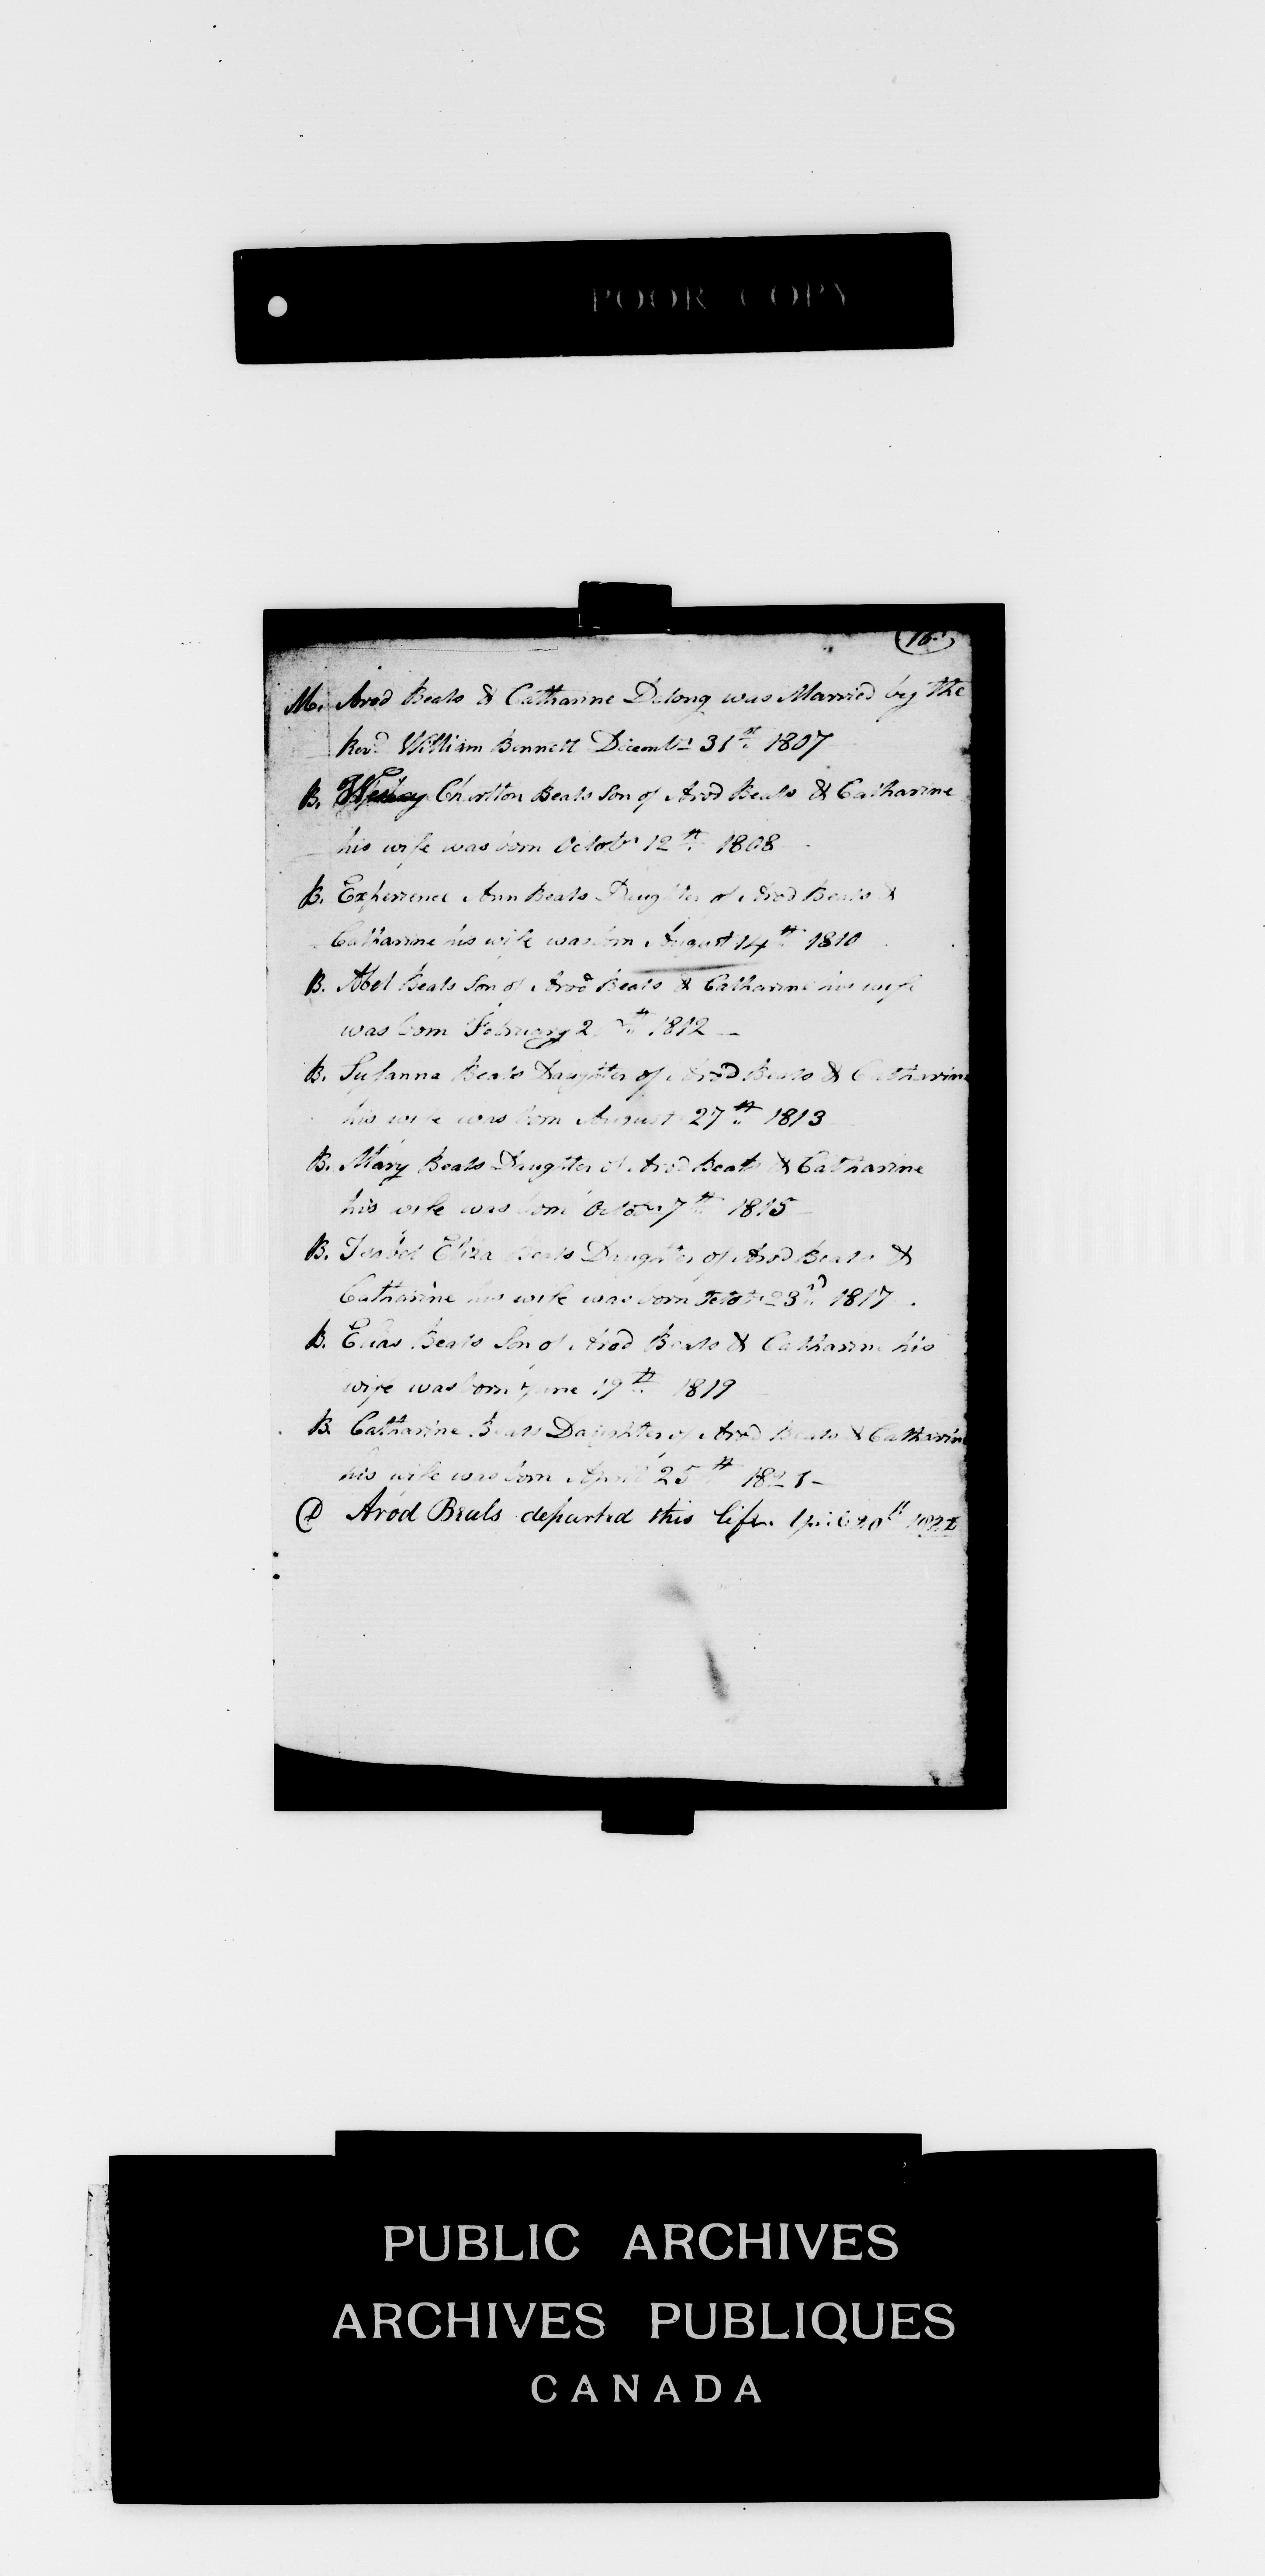 POOR COPY
16
M. Arod Beals & Catharine Delong was Married by the
Revd. William Bennett Decembr 31st 1807
B. Wesley Charlton Beals Son of Arod Beals & Catharine
his wife was born Octobr 12th 1808
B. Experience Ann Beals Daughter of Arod Beals &
Catharine his wife was born August 14th 1810
B. Abel Beals Son of Arod Beals & Catharine his wife
was born February 1812
B. Susanna Beals Daughter of Arod Beals & Catharine
his wife was born August 27th 1813
B. Mary Beals Daughter of Arod Beals & Catharine
his wife was born Octobr 7th 1815
B. Eliza Beals Daughter of Arod Beals &
Catharine his wife was born 23rd 1817
B. Elias Beals Son of Arod Beals & Catharine his
wife was born June 19th 1819
B. Catharine Beals Daughter of Arod Beals & Catharine
his wife was born April 25th 1821
D Arod Beals departed this life April 20th
PUBLIC ARCHIVES
ARCHIVES PUBLIQUES
CANADA